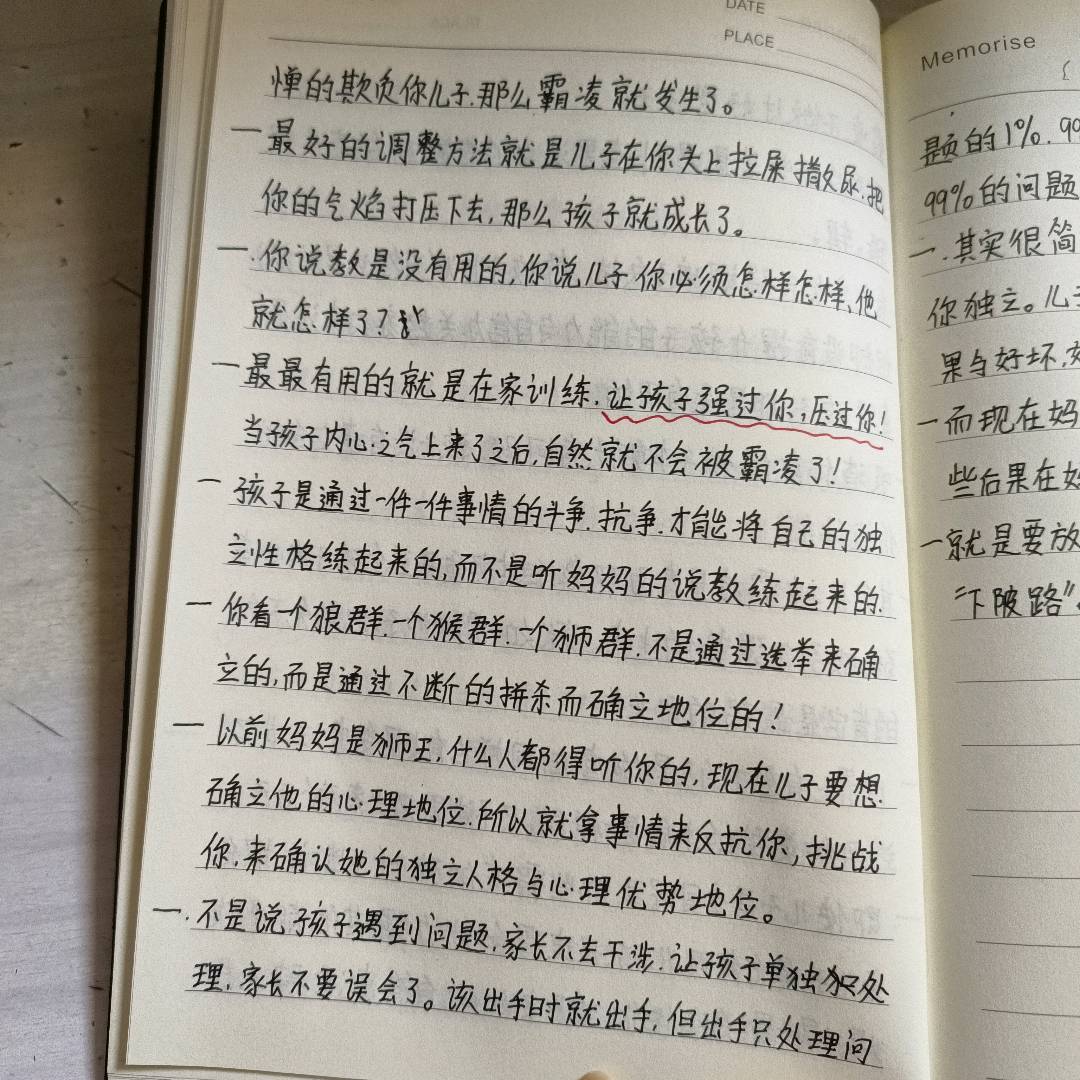 DATE
PLACE
惮的欺负你儿子.那么霸凌就发生了。
一最好的调整方法就是儿子在你头上拉屎撒尿.把
你的气焰打压下去,那么孩子就成长了。
一.你说教是没有用的,你说儿子你必须怎样怎样,他
就怎样了?
一最最有用的就是在家训练.让孩子强过你,压过你!
当孩子内心之气上来了之后,自然就不会被霸凌了!
一 孩子是通过一件一件事情的斗争.抗争.才能将自己的独
立性格练起来的,而不是听妈妈的说教练起来的.
一 你看一个狼群.一个猴群.一个狮群.不是通过选举来确
立的,而是通过不断的拼杀而确立地位的!
一 以前妈妈是狮王,什么人都得听你的,现在儿子要想
确立他的心理地位.所以就拿事情来反抗你,挑战
你,来确认她的独立人格与心理优势地位。
一.不是说孩子遇到问题,家长不去干涉.让孩子单独处
理,家长不要误会了。该出手时就出手,但出手只处理问
Memorise
题的1%.99
99%的问题
一.其实很简
你独立。儿
果与好坏,
一而现在妈
些后果在
一就是要放
"下陂路"